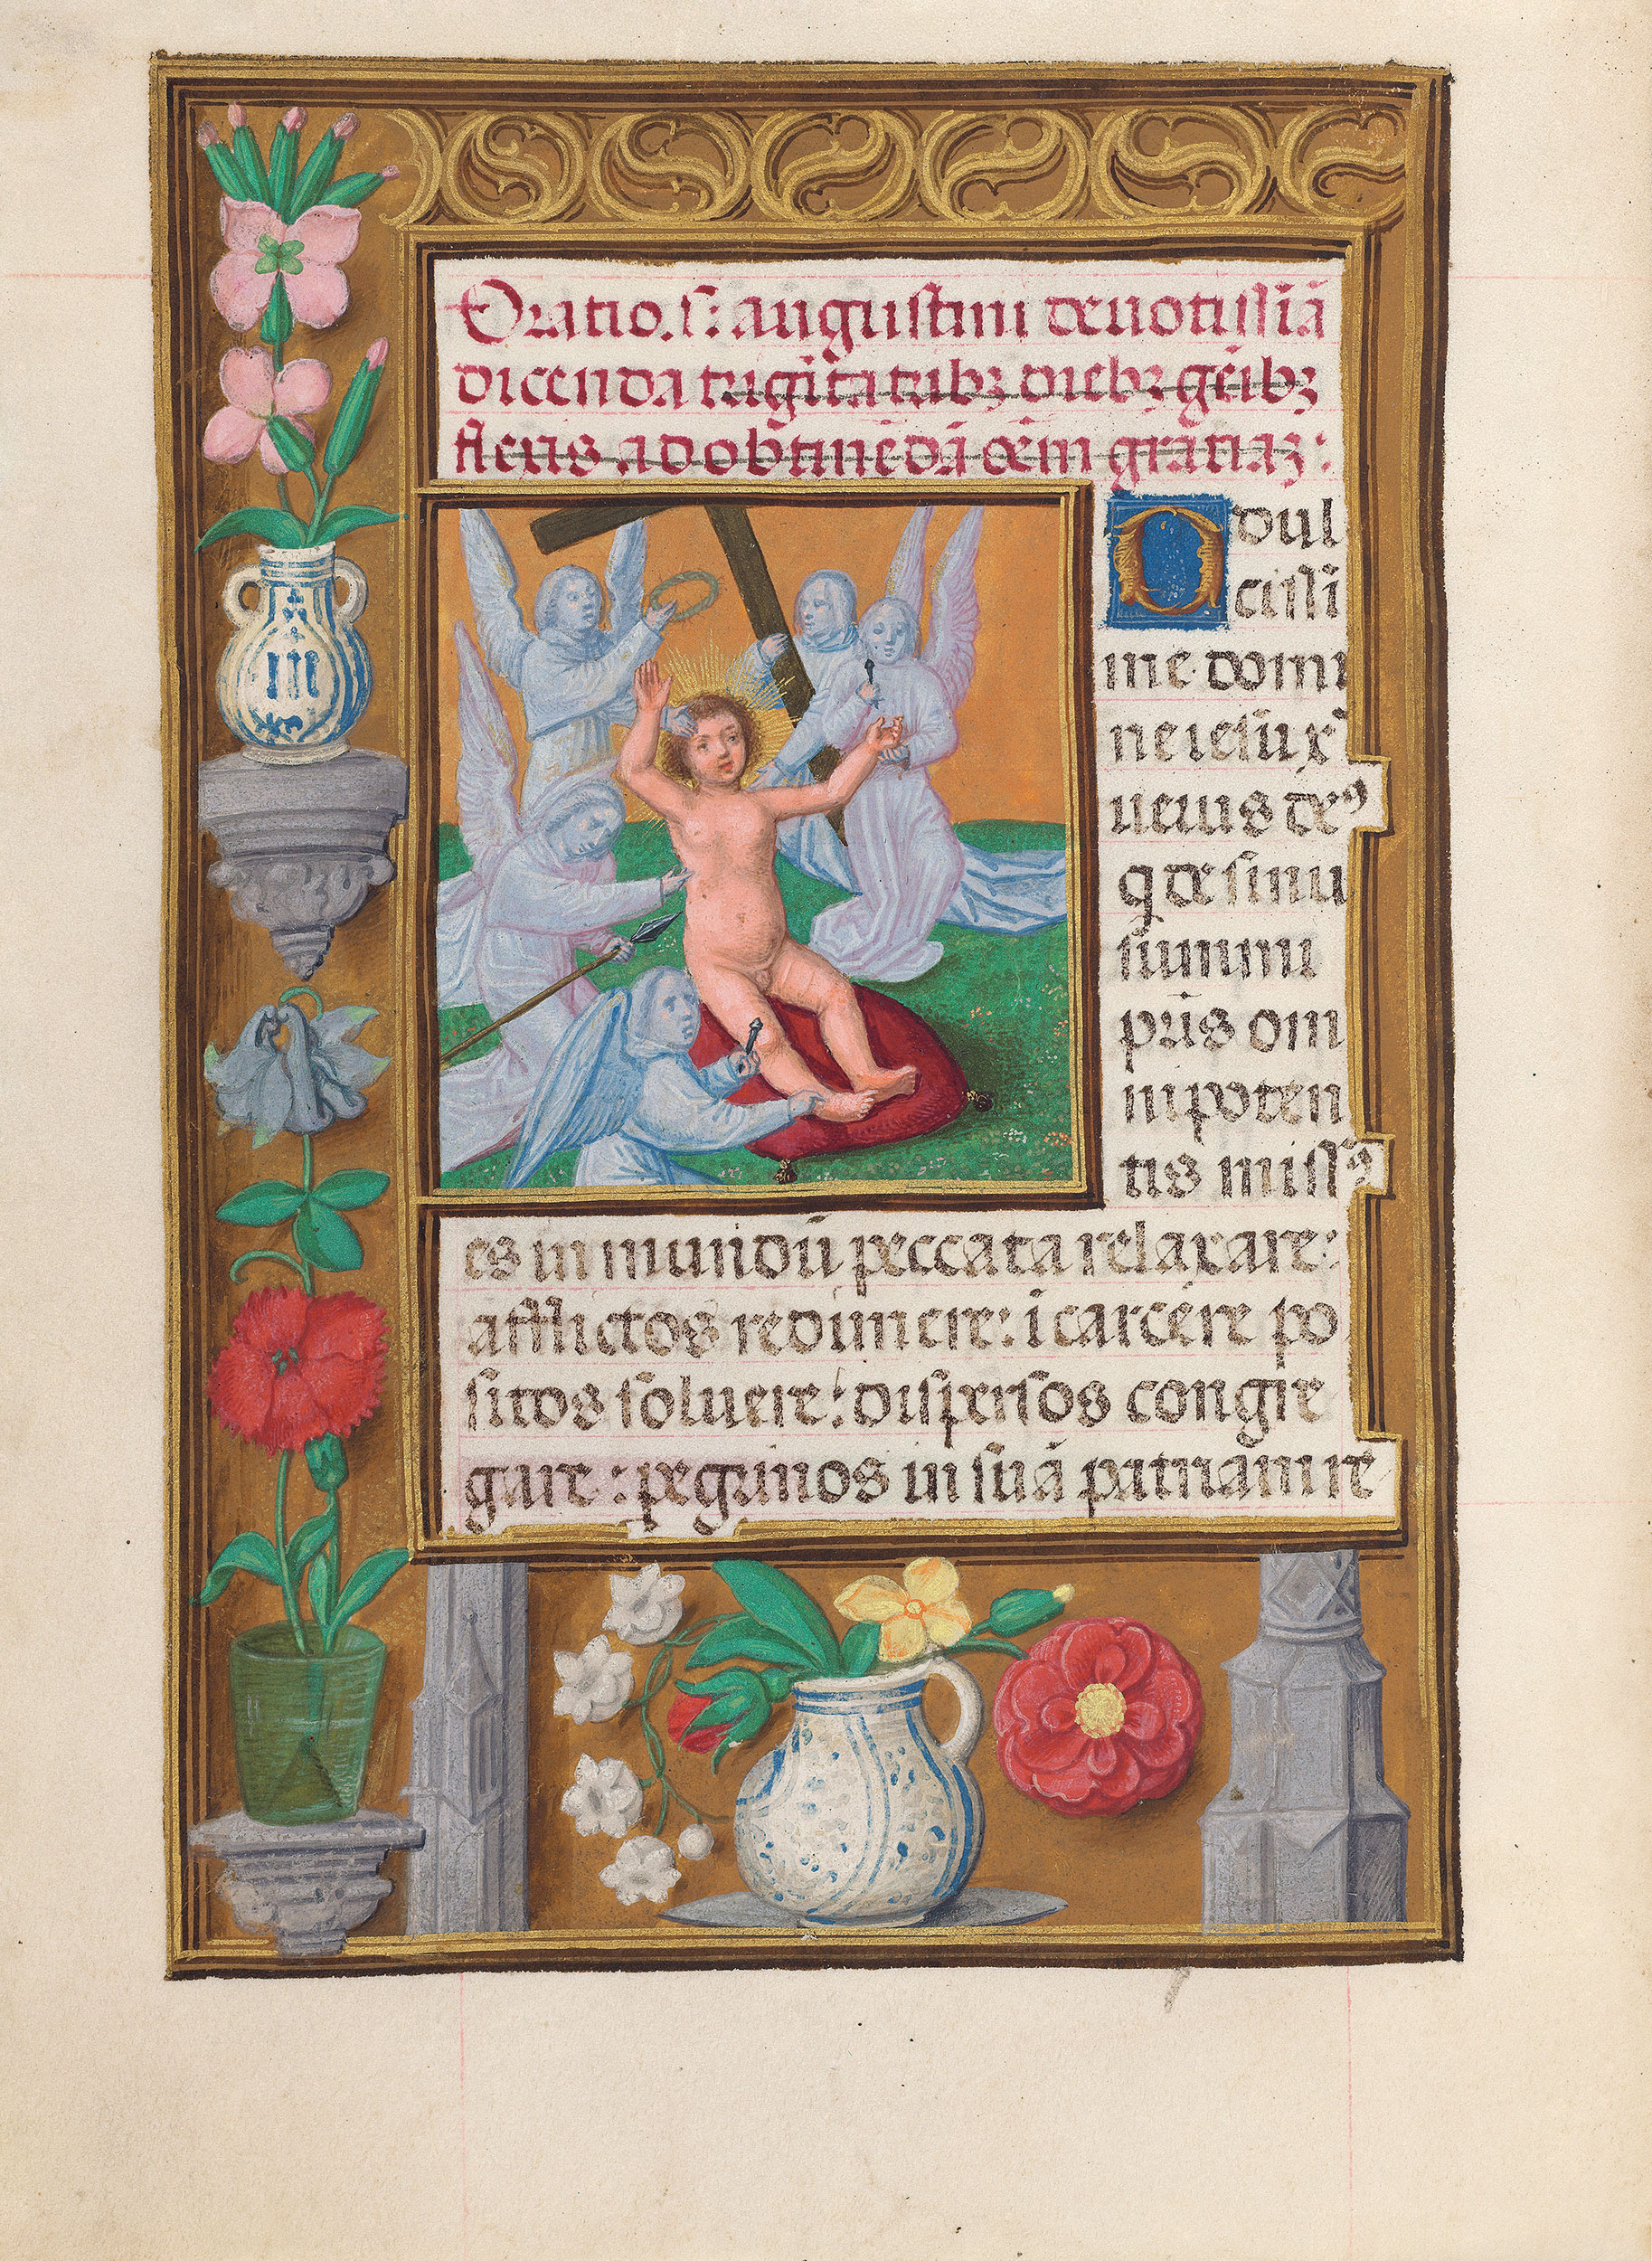 Oratio. s: augustini deuotissiā
dicenda trigīta tribꝫ diebꝫ gēibꝫ
flexis ad obtinēdā oēm gratiaꝫ:
O dul
cissi
me domi
ne iesu x̄
uerus deꝰ
q̄ de sinu
summi
pr̄is om
nipoten
tis missꝰ
es in mundū peccata relaxare:
afflictos redimere: ī carcere po
sitos soluere: dispersos congre
gare: pegrinos in suā patriam re
III